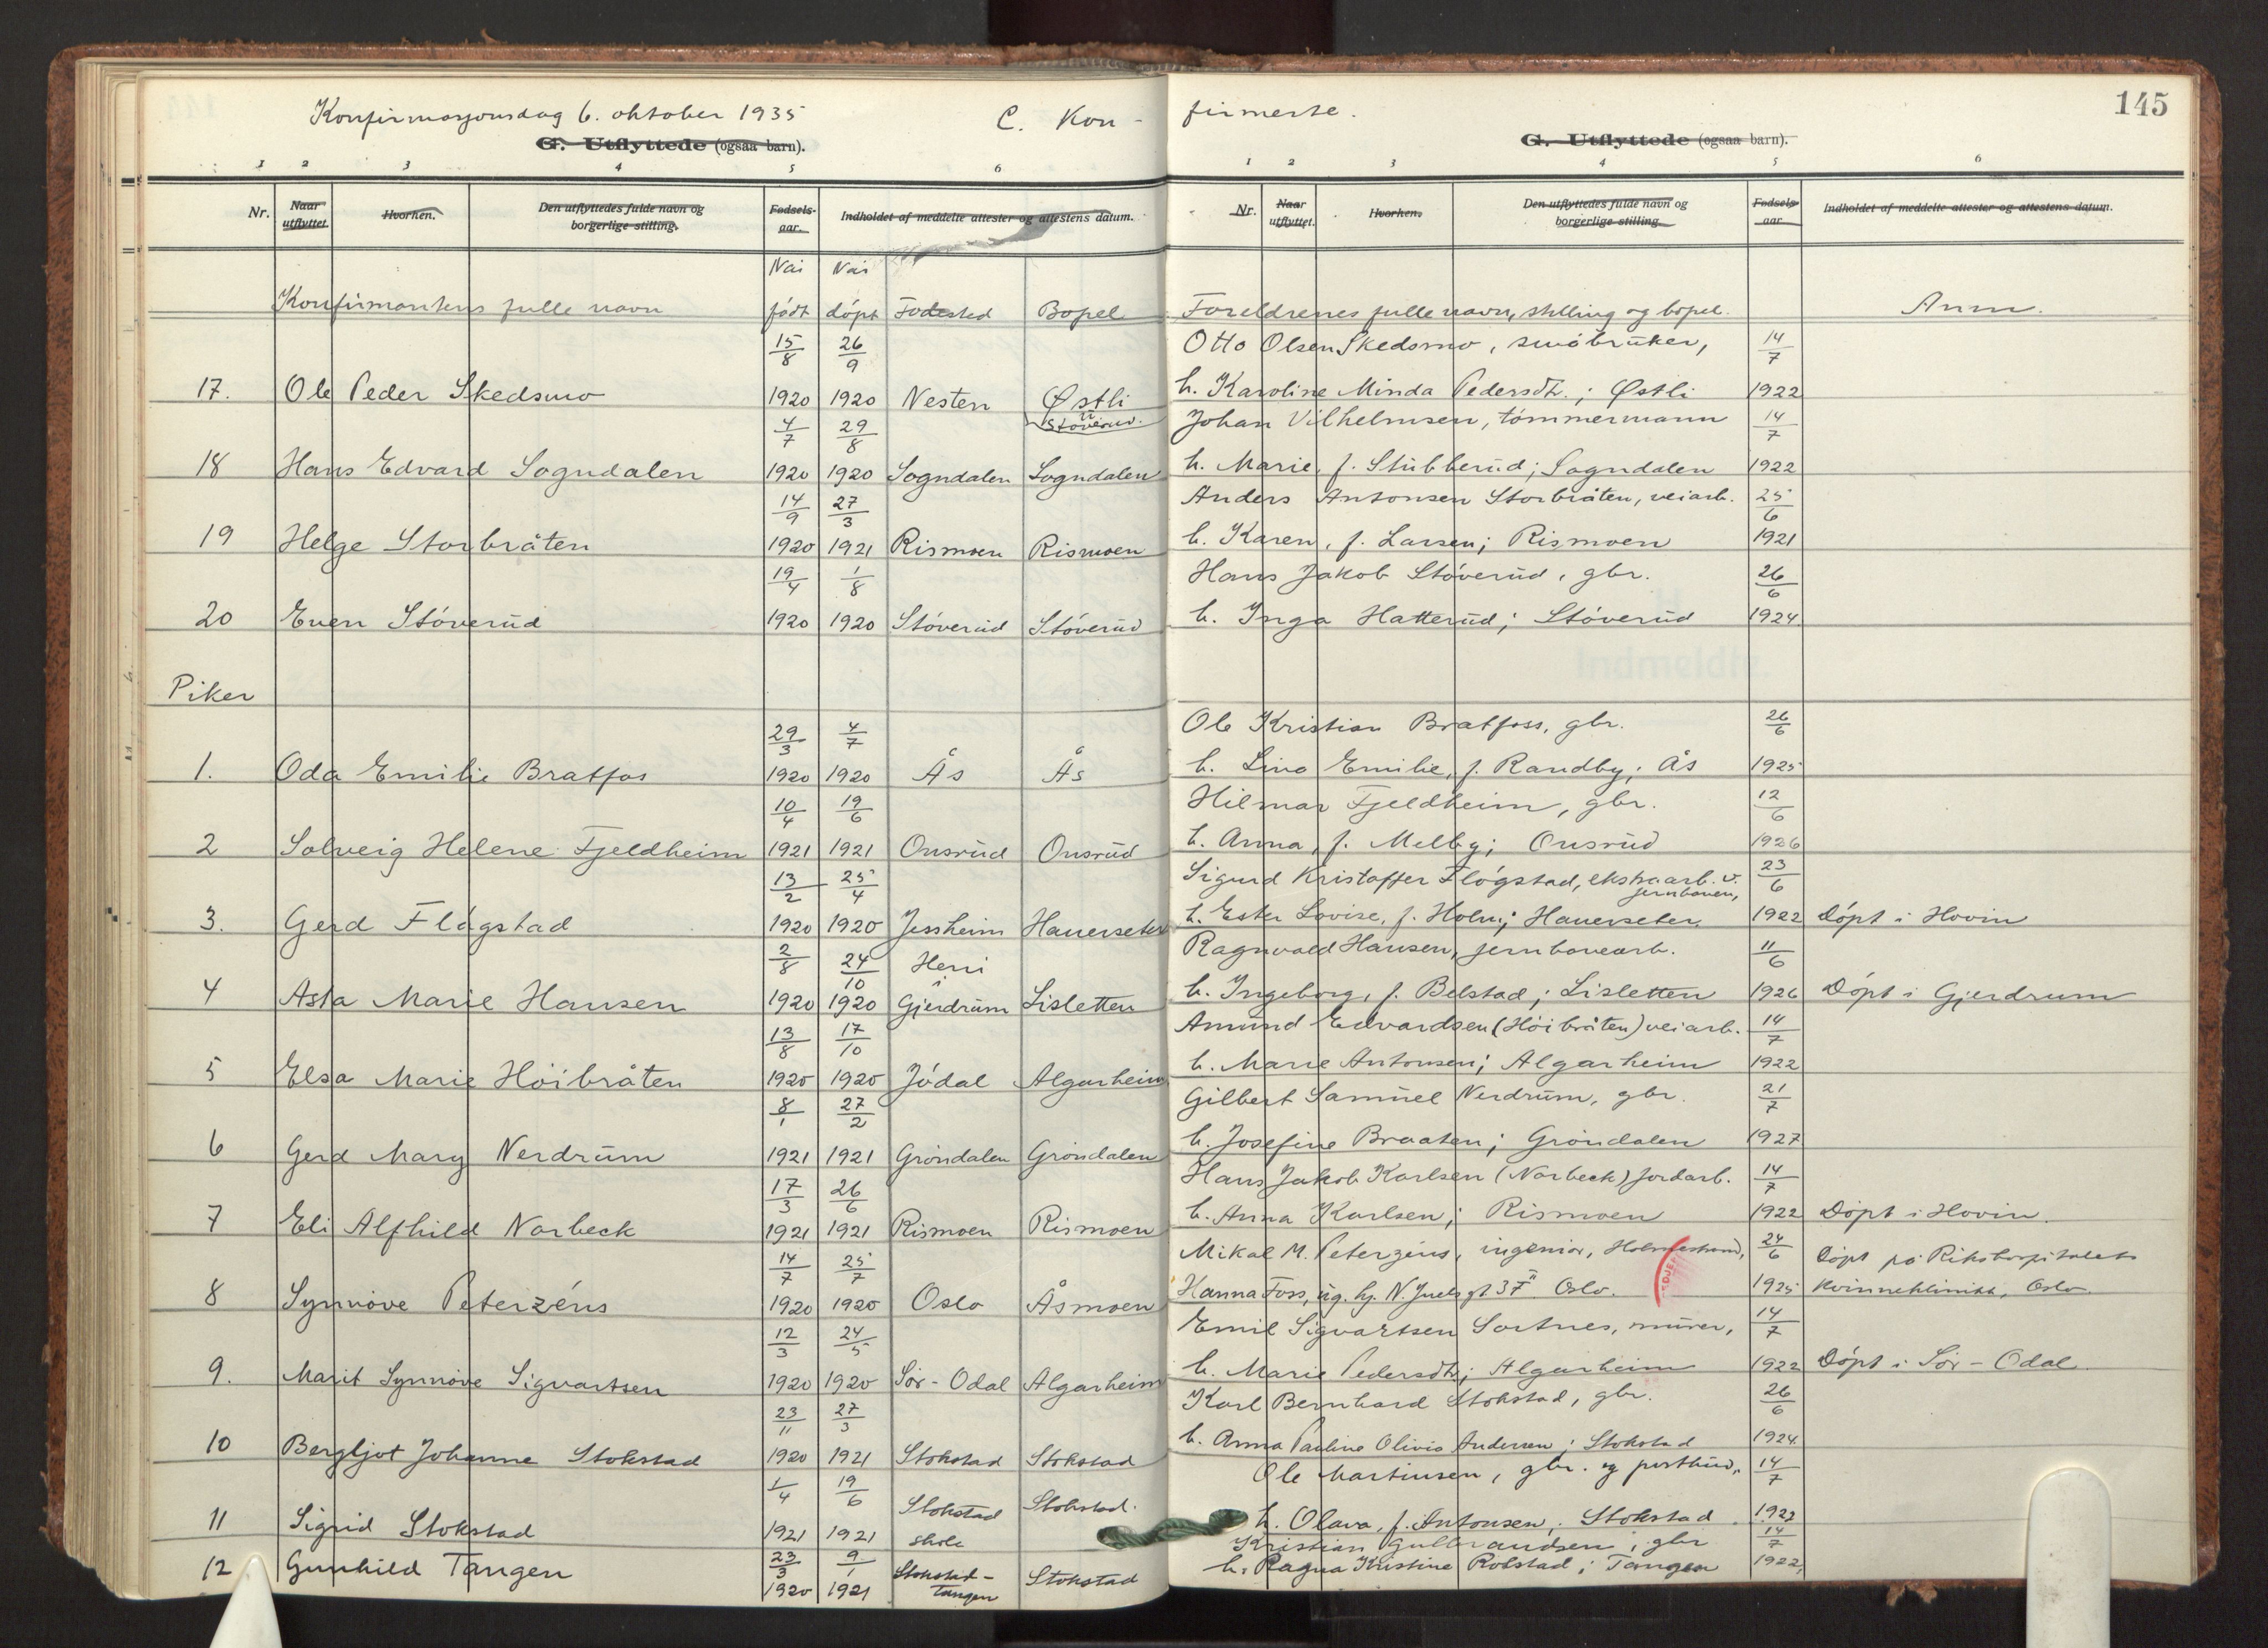 Konfirmasjonsdag 6. oktober 1935 C. Kon-firmerte. 145
G. Utflyttede (ogsaa barn). G. Utflyttede (ogsaa barn).
1 2 3 4 5 6 1 2 3 4 5 6
Nr. Naar utflyttet. Hvorhen. Den utflyttedes fulde navn og borgerlige stilling. Fødsels-aar. Indholdet af meddelte attester og attestens datum. Nr. Naar utflyttet. Hvorhen. Den utflyttedes fulde navn og borgerlige stilling. Fødsels-aar. Indholdet af meddelte attester og attestens datum.
Når Når
Konfirmantens fulle navn født døpt Fødested Bopel Foreldrenes fulle navn, stilling og bopel. Anm.
15/8 26/9 Otto Olsen Skedsmo, småbruker, 14/7
17. Ole Peder Skedsmo 1920 1920 Nesten Østli u/ Støverud. h. Karoline Minda Pedersdtr.; Østli 1922
4/7 29/8 Johan Vilhelmsen, tømmermann 14/7
18 Hans Edvard Sogndalen 1920 1920 Sogndalen Sogndalen h. Marie, f. Stubberud; Sogndalen 1922
14/9 27/3 Anders Antonsen Storbråten, veiarb. 25/6
19 Helge Storbråten 1920 1921 Rismoen Rismoen h. Karen, f. Larsen; Rismoen 1921
19/4 1/8 Hans Jakob Støverud, gbr. 26/6
20 Even Støverud 1920 1920 Støverud Støverud h. Inga Hatterud; Støverud 1924
Piker
29/3 4/7 Ole Kristian Bratfoss, gbr. 26/6
1. Oda Emilie Bratfos 1920 1920 Ås Ås h. Lina Emilie, f. Randby; Ås 1925
10/4 19/6 Hilmar Fjeldheim, gbr. 12/6
2 Solveig Helene Fjeldheim 1921 1921 Onsrud Onsrud h. Anna, f. Melby; Onsrud 1926
13/2 25/4 Sigurd Kristoffer Fløgstad, ekstraarb. v. jernbanen, 23/6
3. Gerd Fløgstad 1920 1920 Jessheim Hauerseter h. Ester Lovise, f. Holm; Hauerseter. 1922 Døpt i Hovin
2/8 24/10 Heni i Ragnvald Hansen, jernbanearb. 11/6
4 Asta Marie Hansen 1920 1920 Gjerdrum Lisletten h. Ingeborg, f. Belstad; Lisletten 1926 Døpt i Gjerdrum
13/8 17/10 Amund Edvardsen (Høibråten) veiarb. 14/7
5 Elsa Marie Høibråten 1920 1920 Jødal Algarheim h. Marie Antonsen; Algarheim 1922
8/1 27/2 Gilbert Samuel Nerdrum, gbr. 21/7
6 Gerd Mary Nerdrum 1921 1921 Grøndalen Grøndalen h. Josefine Braaten; Grøndalen 1927
17/3 26/6 Hans Jakob Karlsen (Norbeck) jordarb. 14/7
7 Eli Alfhild Norbeck 1921 1921 Rismoen Rismoen h. Anna Karlsen; Rismoen 1922 Døpt i Hovin.
14/7 25/7 Mikal M. Peterzéns, ingeniør, Holmestrand, 24/6 Døpt på Rikshospitalets
8 Synnøve Peterzéns 1920 1920 Oslo Åsmoen Hanna Foss, ug. hj. N. Juels gt 37 II Oslo. 1925 kvinneklinikk, Oslo
12/3 24/5 Emil Sigvartsen Sortnes, murer, 14/7
9. Marit Synnøve Sigvartsen 1920 1920 Sør-Odal Algarheim h. Marie Pedersdtr; Algarheim 1922 Døpt i Sør-Odal.
23/11 27/3 Karl Bernhard Stokstad, gbr. 26/6
10 Bergljot Johanne Stokstad 1920 1921 Stokstad Stokstad h. Anna Pauline Olivia Andersen; Stokstad 1924
1/4 19/6 Ole Martinsen, gbr. og postbud, 14/7
11 Sigrid Stokstad 1921 1921 Stokstad skole Stokstad. h. Olava, f. Antonsen; Stokstad 1922
23/3 9/1 Kristian Gulbrandsen, gbr 14/7
12 Gunhild Tangen 1920 1921 Stokstad-tangen Stokstad h. Ragna Kristine Rolstad; Tangen 1922